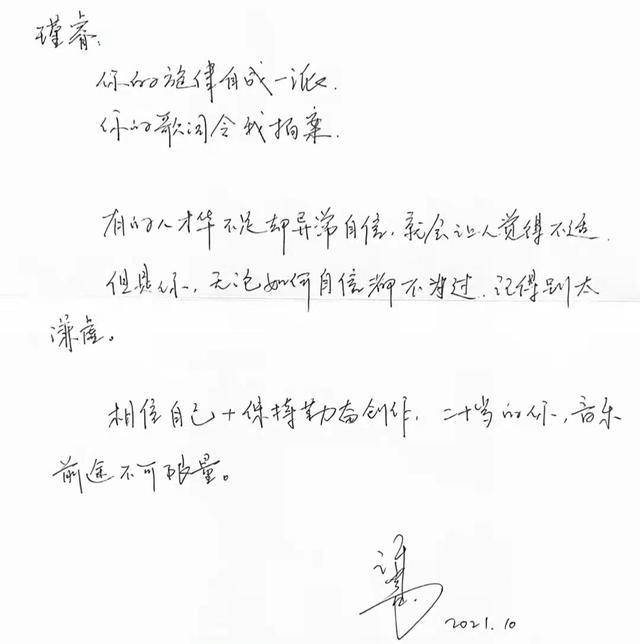 瑾睿:
你的旋律自成一派.
你的歌词令我拍案.
有的人才华不足却异常自信，就会让人觉得不适.
但是你，无论如何自信都不为过.记得别太
谦虚。
相信自己+保持勤奋创作，二十岁的你，音乐
前途不可限量。
2021.10